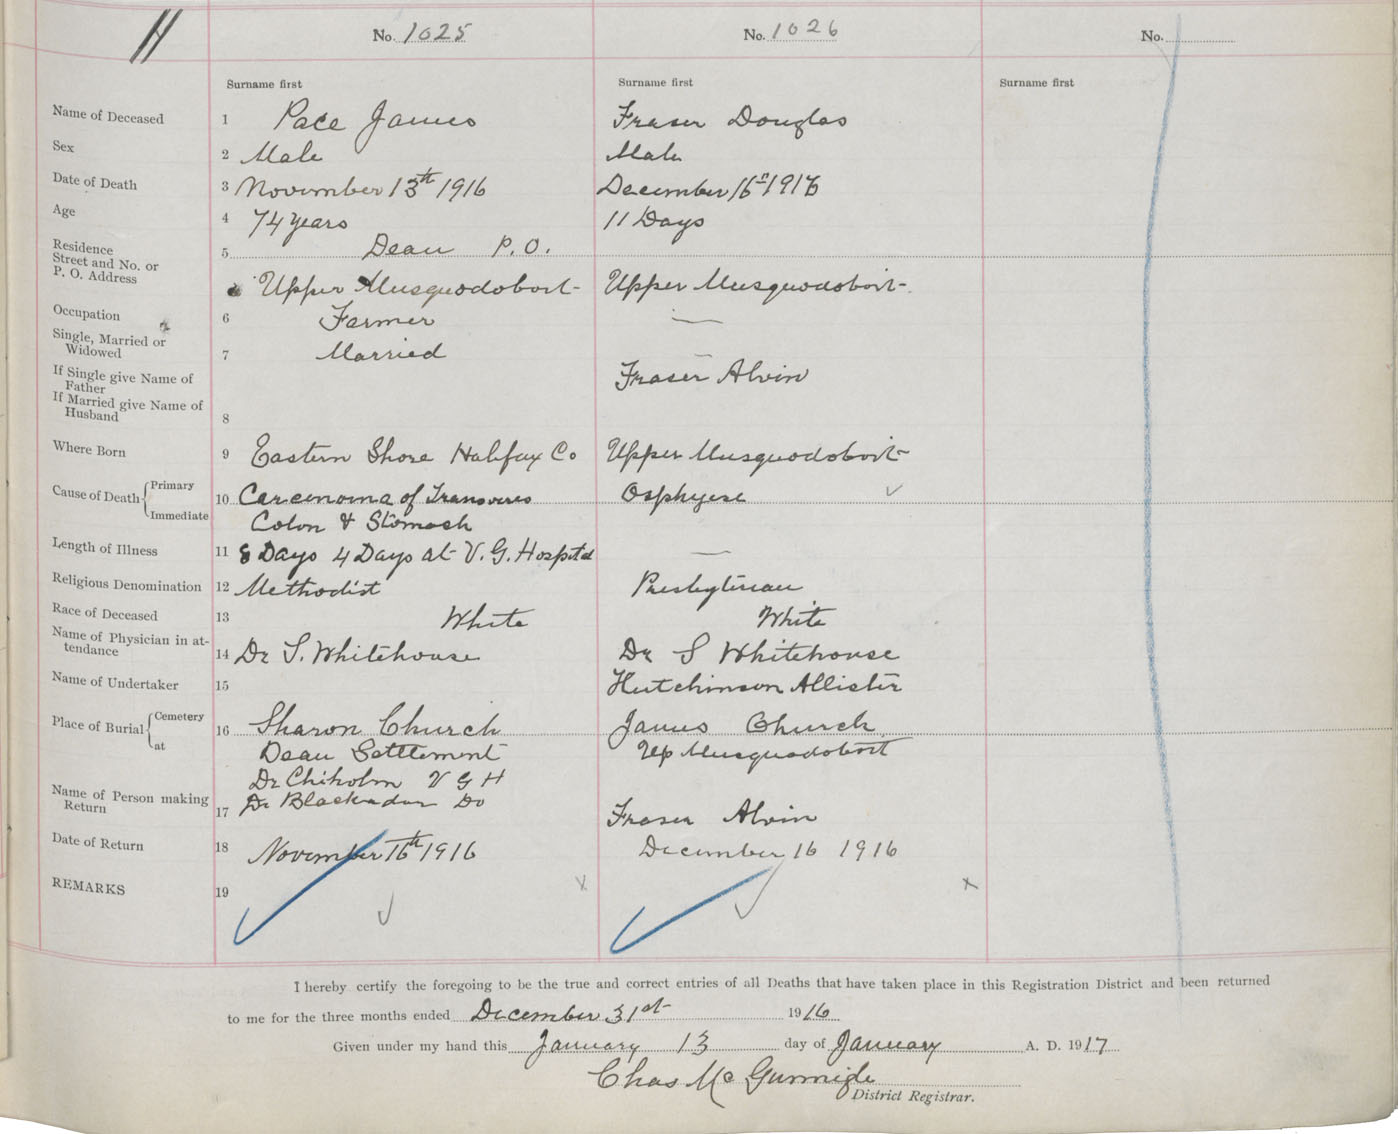 No. 1025
No. 1026
No.
Surname first
Surname first
Surname first
Name of Deceased 1 Pace James Fraser Douglas
Sex 2 Male Male
Date of Death 3 November 13th 1916 December 16th 1916
Age 4 74 years 11 Days
Residence
Street and No. or
P. O. Address
5 Dean P.O.
Upper Musquodoboit Upper Musquodoboit
Occupation 6 Farmer —
Single, Married or
Widowed
7 Married —
If Single give Name of
Father
Fraser Alvin
If Married give Name of
Husband
8
Where Born 9 Eastern Shore Halifax Co Upper Musquodoboit
Cause of Death Primary
Immediate
10 Carcenoma of Transvers
Colon & Stomach
Length of Illness 11 8 Days 4 Days at V. G. Hospital —
Religious Denomination 12 Methodist Presbyterian
Race of Deceased 13 White White
Name of Physician in at-
tendance
14 Dr S. Whitehouse Dr S Whitehouse
Name of Undertaker 15 Hutchinson Allister
Place of Burial Cemetery
at
16 Sharon Church James Church
Dean Settlement Up Musquodoboit
Dr Chisholm V G H
Name of Person making
Return
17 Dr Blackadar Do Fraser Alvin
Date of Return 18 November 16th 1916 December 16 1916
REMARKS 19
I hereby certify the foregoing to be the true and correct entries of all Deaths that have taken place in this Registration District and been returned
to me for the three months ended December 31st 1916
Given under my hand this January 13 day of January A. D. 1917
Chas Mc Gunnigle
District Registrar.